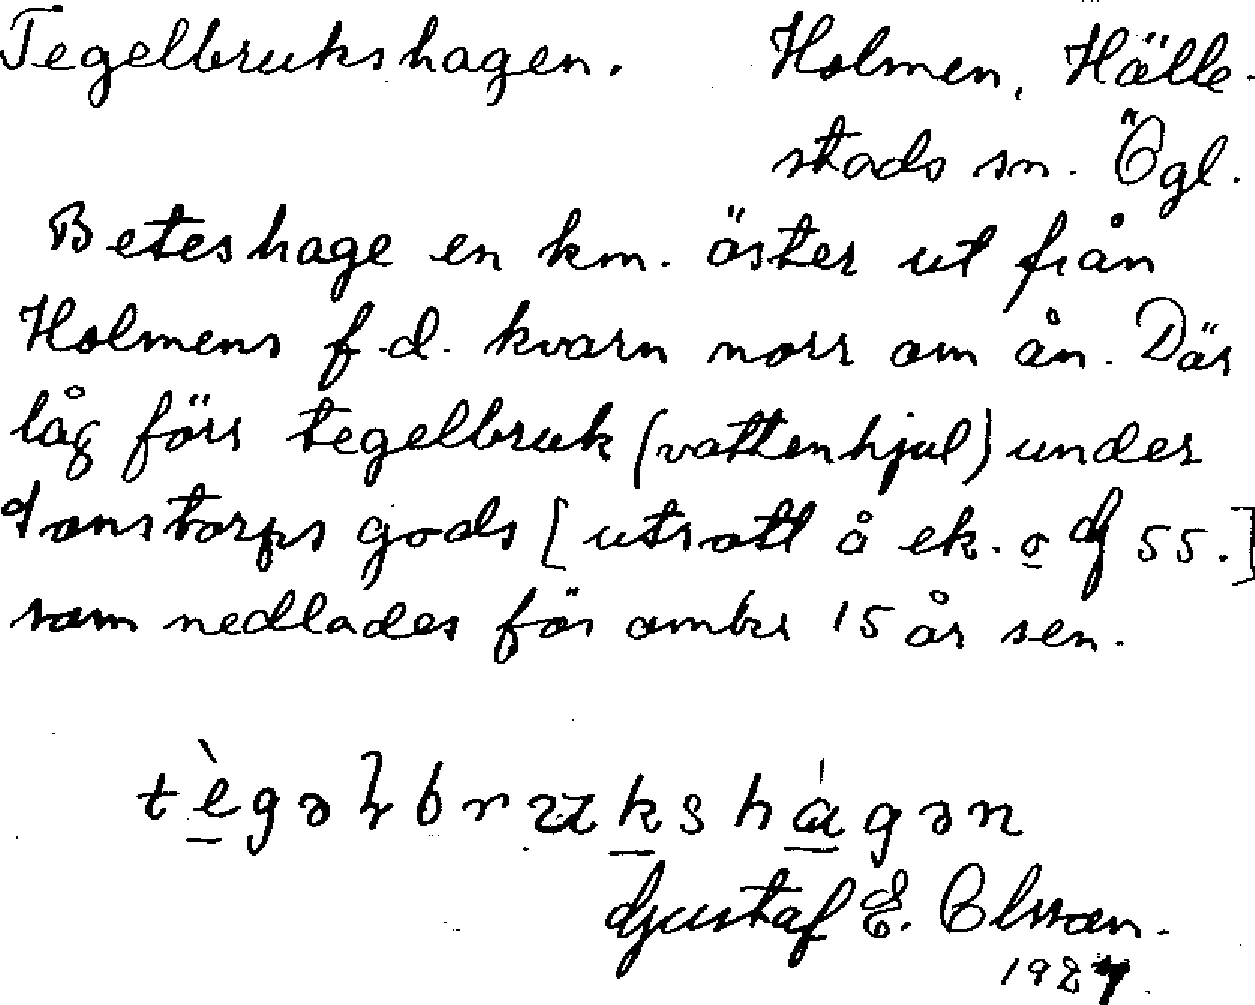 Tegelbrukshagen. Holmen, Hälle-
stads sn. Ögl.
Beteshage en km. öster ut från
Holmens f.d. kvarn norr om ån. Där
låg förr tegelbruk (vattenhjul) under
Sonstorps gods [utsatt å ek.
som nedlades för omkr 15 år sen.
Gustaf E. Olsson.